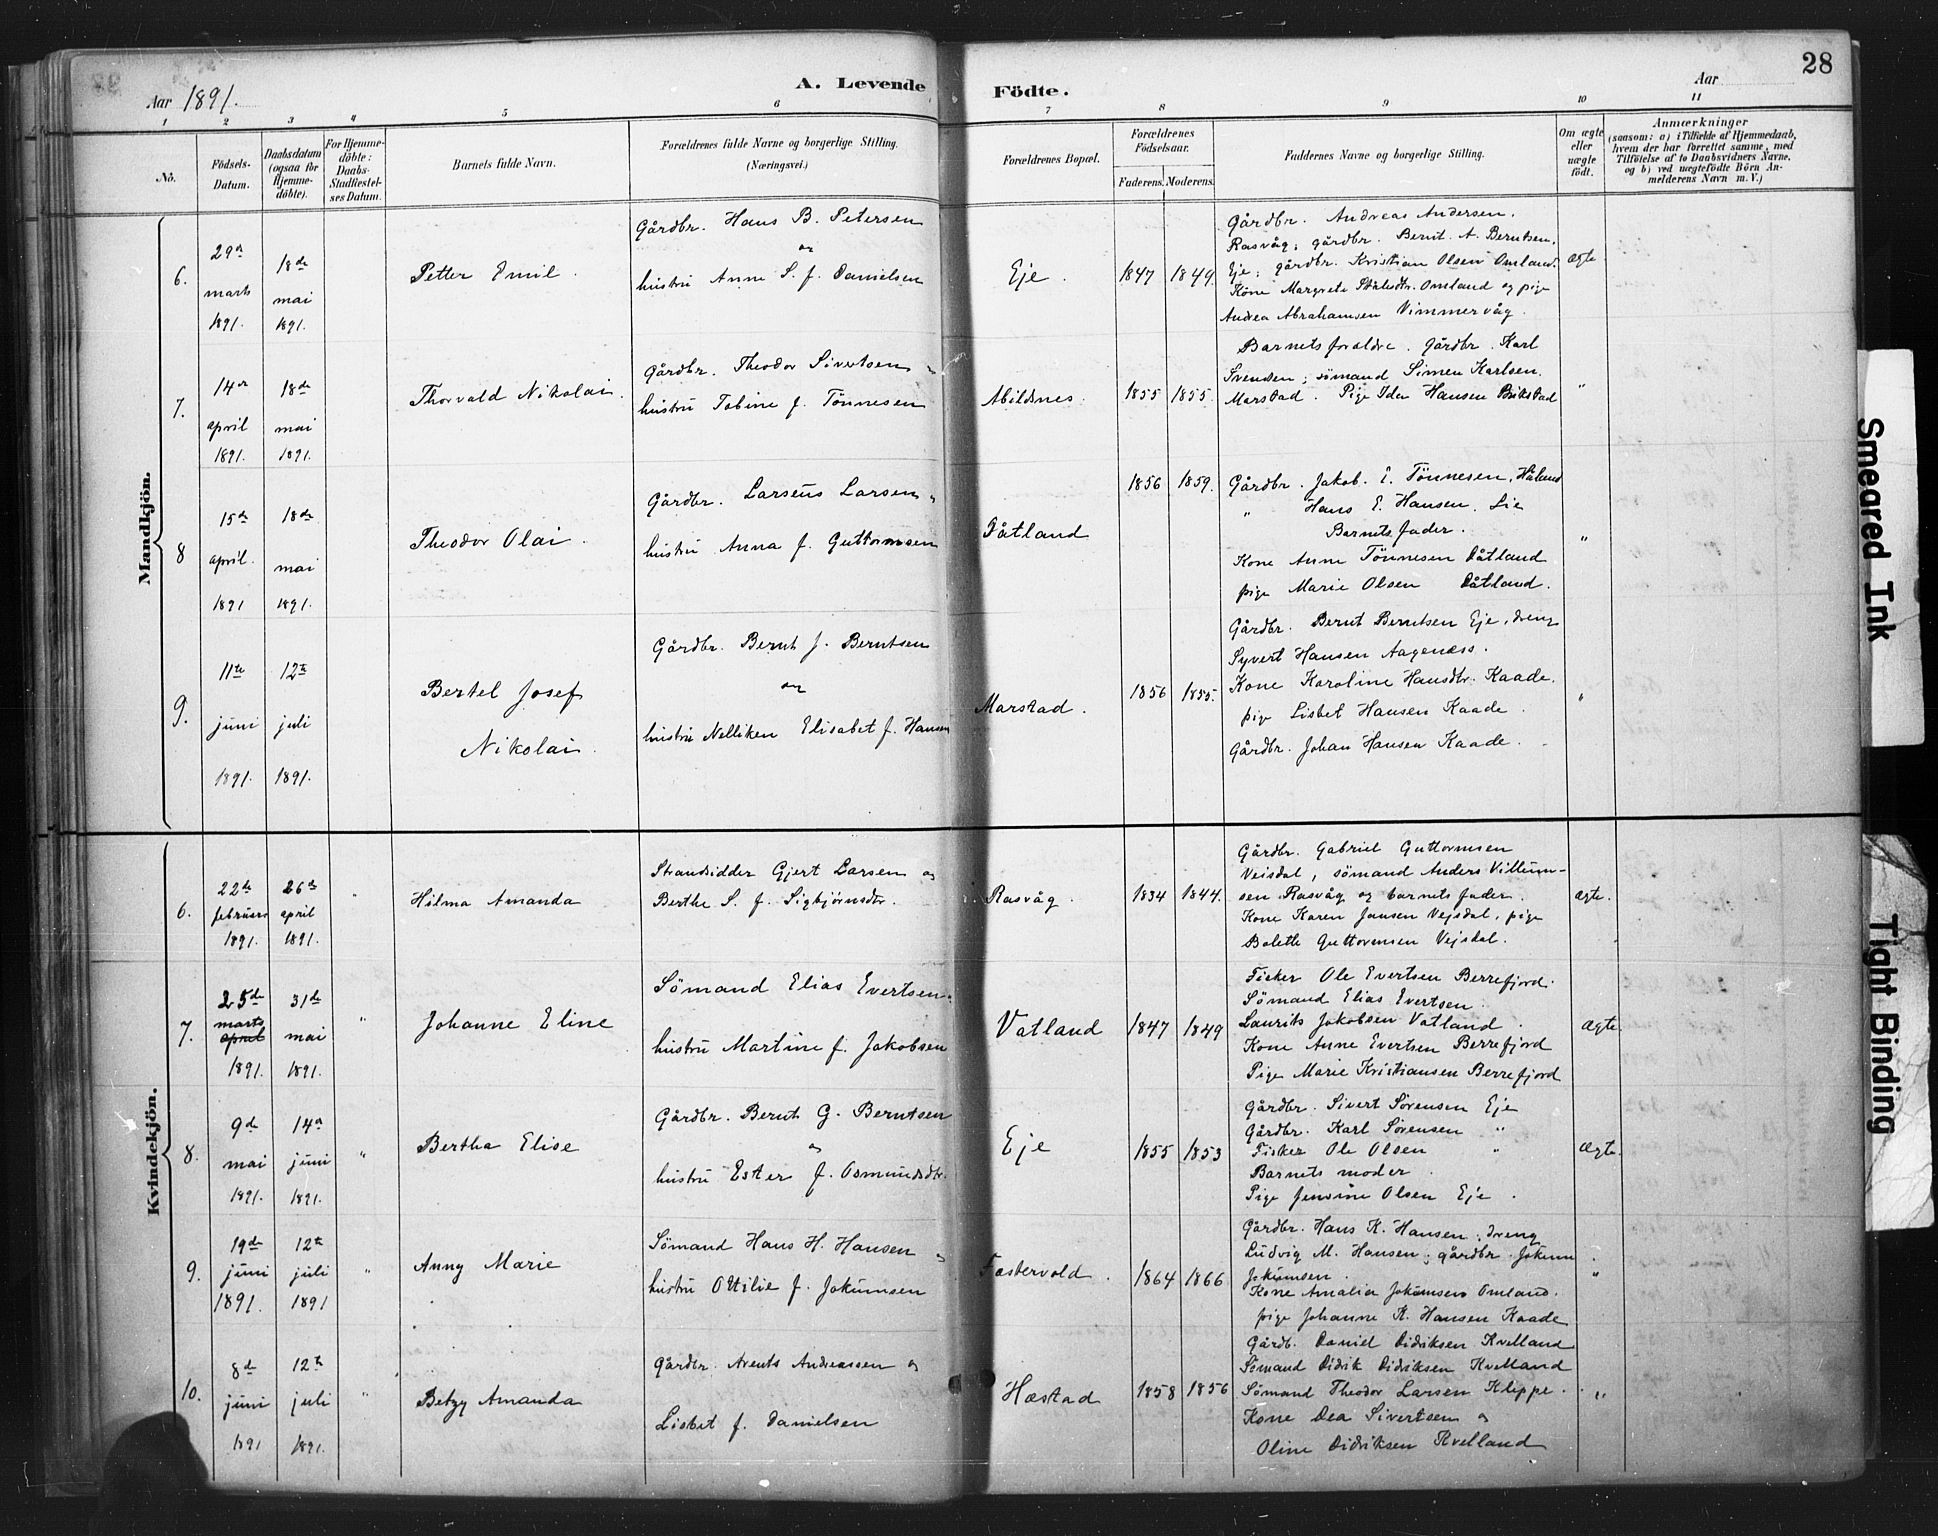 28
Aar 1891.
A. Levende Födte.
Aar
1 2 3 4 5 6 7 8 9 10 11
No.
Födsels-Datum.
Daabsdatum (ogsaa for Hjemme-döbte).
For Hjemme-döbte: Daabs-Stadfæstel-ses Datum.
Barnets fulde Navn.
Forældrenes fulde Navne og borgerlige Stilling.
(Næringsvei.)
Forældrenes Bopæl.
Forældrenes Födselsaar.
Faderens. Moderens.
Faddernes Navne og borgerlige Stilling.
Om ægte eller uægte födt.
Anmærkninger
(saasom: a) i Tilfælde af Hjemmedaab, hvem der har forrettet samme, med Tilföielse af to Daabsvidners Navne, og b) ved uægtefödte Börn An-melderens Navn m. V.)
Mandkjön.
6.
29de marts 1891.
18de mai 1891.
Petter Emil.
Gårdbr. Hans B. Petersen
og
hustru Anne S. f. Danielsen
Eje.
1847 1849.
Gårdbr. Andreas Andersen,
Rasvåg; gårdbr. Bernt. A. Berntsen,
Eje; gårdbr. Kristian Olsen Omland.
Kone Margrete Omland og pige
Andrea Abrahamsen Vimmervåg.
ægte
7.
14de april 1891.
18de mai 1891.
Thorvald Nikolai.
Gårdbr. Theodor Sivertsen
hustru Tobine f. Tönnesen
Abildsnes.
1855 1855.
Barnets forældre. Gårdbr. Karl
Svendsen; sömand Simen Karlsen.
Marstad. Pige Ida Hansen Brikstad
"
8
15de april. 1891
18de mai 1891.
Theodor Olai.
Gårdbr. Larseus Larsen
hustru Anna f. Guttormsen
Dåtland
1856 1859.
Gårdbr. Jakob. E. Tönnesen, Håland
" Hans E. Hansen, Lie
Barnets fader.
Kone Anne Tönnesen Dåtland
pige Marie Olsen Dåtland.
"
9.
11te juni 1891.
12te juli 1891.
Bertel Josef
Nikolai.
Gårdbr. Bernt J. Berntsen
og
hustru Nelliken Elisabet f. Hansen
Marstad.
1856 1855.
Gårdbr. Bernt Berntsen Eje, dreng
Syvert Hansen Aagenæss.
Kone Karoline Hansdtr. Kaade.
pige Lisbet Hansen Kaade.
Gårdbr. Johan Hansen Kaade.
"
Kvindekjön.
6.
22de februar 1891.
26de april 1891.
"
Hilma Amanda
Strandsidder Gjert Larsen og
Berthe S. f. Sigbjörnsdtr.
Rasvåg.
1834 1844.
Gårdbr. Gabriel Guttormsen
Veisdal, sömand Anders Villum-
sen Rasvåg og barnets fader.
Kone Karen Jansen Vejsdal, pige
Bolette Guttormsen Vejsdal.
ægte.
7.
25de marts april 1891.
31de mai 1891.
"
Johanne Eline
Sömand Elias Evertsen
hustru Martine f. Jakobsen
Vatland
1847 1849
Fisker Ole Evertsen Berrefjord.
Sömand Elias Evertsen
Laurits Jakobsen Vatland.
Kone Anne Evertsen Berrefjord
Pige Marie Kristiansen Berrefjord
ægte.
8.
9de mai 1891.
14de juni 1891.
"
Bertha Elise
Gårdbr. Bernt G. Berntsen
og
hustru Ester f. Osmundsdtr.
Eje
1855 1853
Gårdbr. Sivert Sörensen Eje
Gårdbr. Karl Sörensen "
Fisker Ole Olsen "
Barnets moder.
Pige Jensine Olsen Eje.
ægte.
9.
19de juni 1891.
12te juli 1891
"
Anny Marie
Sömand Hans H. Hansen og
hustru Ottilie f. Jokumsen
Fastervold.
1864 1866
Gårdbr. Hans K. Hansen, dreng
Ludvig M. Hansen, gårdbr. Jokum
Jokumsen.
Kone Amalia Jokumsen Omland.
pige Johanne K. Hansen Kaade
"
10.
8de juni 1891
12te juli 1891.
"
Betzy Amanda
Gårdbr. Arents Andreassen og
Lisbet f. Danielsen
Hæstad
1858 1856
Gårdb. Daniel Didriksen Kvelland
Sömand Didrik Didriksen Kvelland
Sömand Theodor Larsen Kleppe.
Kone Dea Sivertsen og
Oline Didriksen Kvelland
"
Smeared Ink
Tight Binding